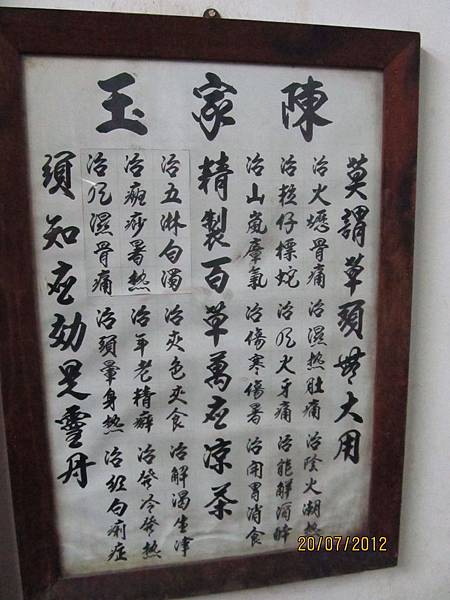 陳家玉
莫謂草頭無大用
治火蟋骨痛 治濕熱肚痛 治陰火潮熱
治粒仔標蛇 治風火牙痛 治能解酒醉
治山嵐瘴氣 治傷寒傷暑 治開胃消食
精製百草萬應凉茶
治五淋白濁 治夾色夾食 治解渴生津
治痧暑熱 治年老精癖 治發冷發熱
治風濕骨痛 治頭暈身熱 治紅白痢症
須知應効是靈丹
20/07/2012